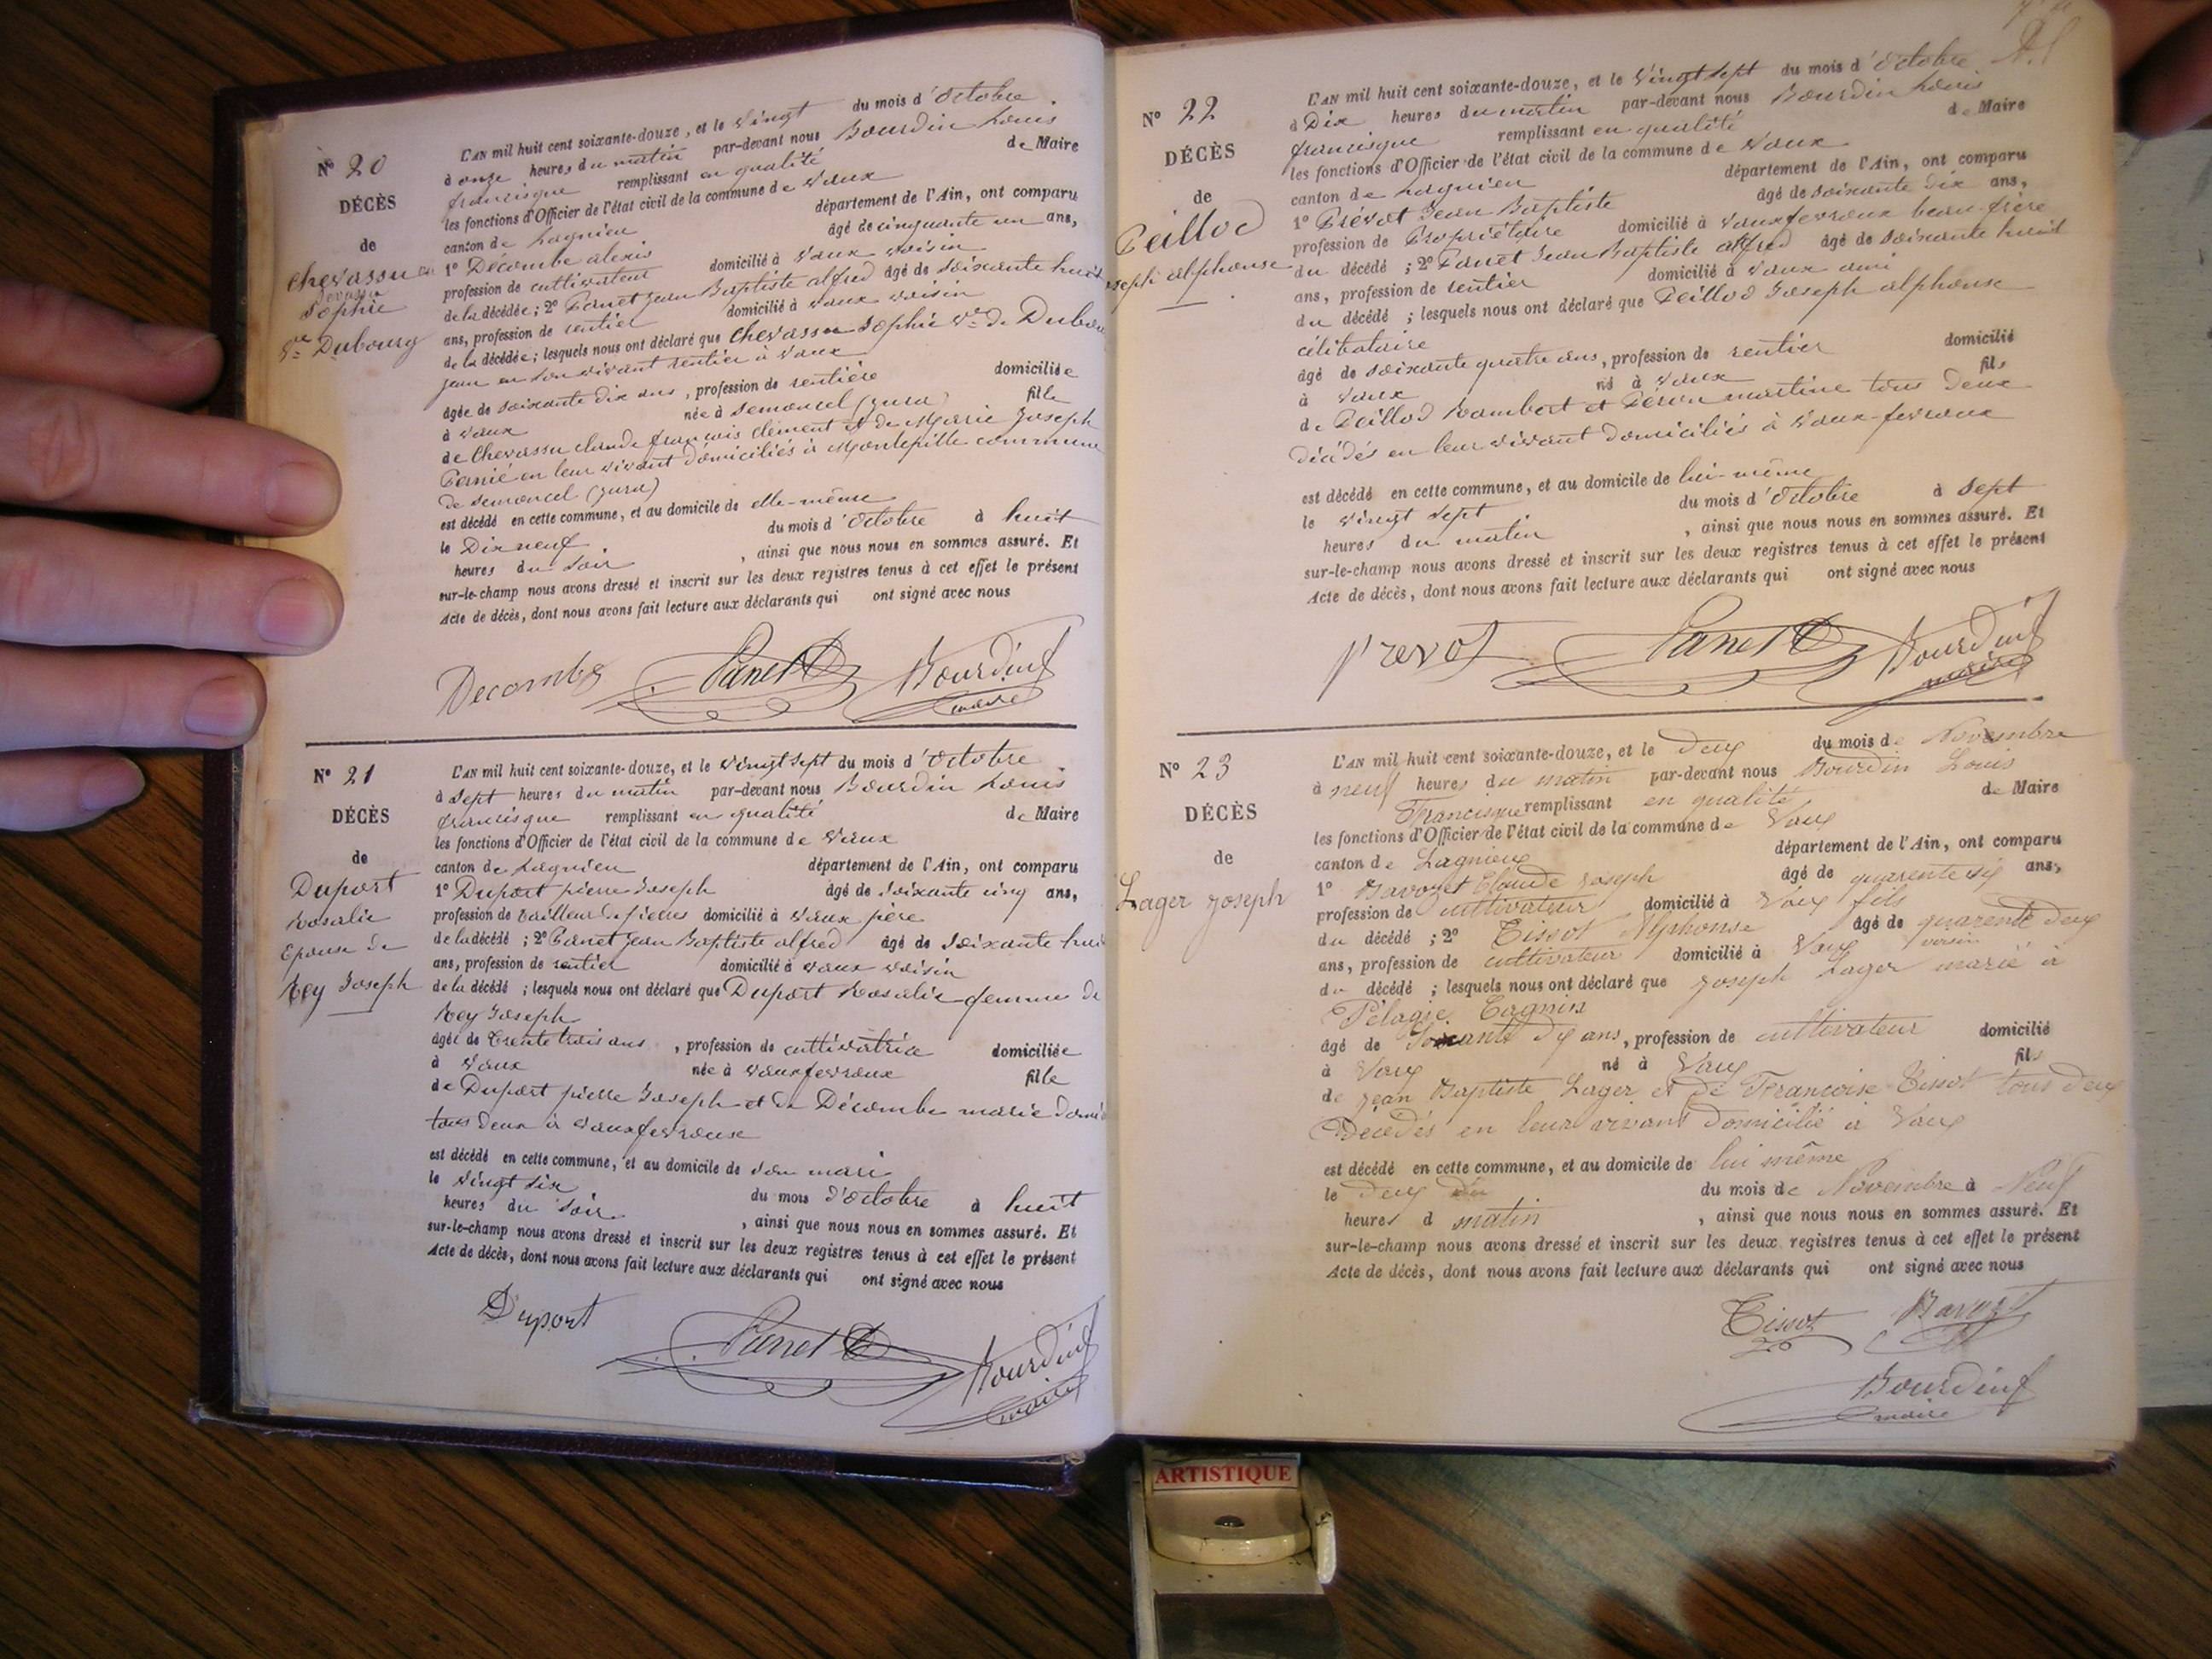 N° 20
DÉCÈS
de
Chevassu
Sophie
Ve Dubourg
L'AN mil huit cent soixante-douze, et le Vingt du mois d'Octobre
à onze heures du matin par-devant nous Bourdin Louis
francisque remplissant en qualité de Maire
les fonctions d'Officier de l'état civil de la commune de Vaux
canton de Lagnieu département de l'Ain, ont comparu
1° Décombe alexis âgé de cinquante un ans,
profession de cultivateur domicilié à Vaux voisin
de la décédée; 2° Panet Jean Baptiste alfred âgé de soixante huit
ans, profession de rentier domicilié à Vaux voisin
de la décédée; lesquels nous ont déclaré que Chevassu Sophie Ve de Dubourg
jean en son vivant rentier à Vaux
âgée de soixante dix ans, profession de rentière domiciliée
à Vaux née à Semoncel (jura) fille
de Chevassu claude françois clément et de Marie Joseph
Pernié en leur vivant domiciliés à Montépille commune
de Semoncel (jura)
est décédé en cette commune, et au domicile de elle-même
le Dix neuf du mois d'Octobre à huit
heures du soir, ainsi que nous nous en sommes assuré. Et
sur-le-champ nous avons dressé et inscrit sur les deux registres tenus à cet effet le présent
Acte de décès, dont nous avons fait lecture aux déclarants qui ont signé avec nous
Decombe Panet Bourdin f
maire
N° 21
DÉCÈS
de
Duport
Rosalie
Epouse de
Rey Joseph
L'AN mil huit cent soixante-douze, et le Vingt Sept du mois d'Octobre
à Sept heures du matin par-devant nous Bourdin Louis
francisque remplissant en qualité de Maire
les fonctions d'Officier de l'état civil de la commune de Vaux
canton de Lagnieu département de l'Ain, ont comparu
1° Duport pierre Joseph âgé de soixante cinq ans,
profession de tailleur de pierres domicilié à Vaux père
de la décédé; 2° Panet Jean Baptiste alfred âgé de soixante huit
ans, profession de rentier domicilié à Vaux voisin
de la décédé; lesquels nous ont déclaré que Duport Rosalie femme de
Rey Joseph
âgée de Trente trois ans, profession de cultivatrice domiciliée
à Vaux née à Vauxfevroux fille
de Duport pierre Joseph et de Décombe marie domici
tous deux à Vauxfevroux
est décédé en cette commune, et au domicile de son mari
le vingt six du mois d'octobre à huit
heures du soir, ainsi que nous nous en sommes assuré. Et
sur-le-champ nous avons dressé et inscrit sur les deux registres tenus à cet effet le présent
Acte de décès, dont nous avons fait lecture aux déclarants qui ont signé avec nous
Duport Panet Bourdin f
maire
N° 22
DÉCÈS
de
Peillod
Joseph alphonse
L'AN mil huit cent soixante-douze, et le Vingt Sept du mois d'Octobre
à Dix heures du matin par-devant nous Bourdin Louis
francisque remplissant en qualité de Maire
les fonctions d'Officier de l'état civil de la commune de Vaux
canton de Lagnieu département de l'Ain, ont comparu
1° Prévot Jean Baptiste âgé de soixante dix ans,
profession de Propriétaire domicilié à Vauxfevroux beau-frère
du décédé; 2° Panet Jean Baptiste alfred âgé de soixante huit
ans, profession de rentier domicilié à Vaux ami
du décédé; lesquels nous ont déclaré que Peillod Joseph alphonse
célibataire
âgé de soixante quatre ans, profession de rentier domicilié
à Vaux né à Vaux fils
de Peillod Rambert et Péron martine tous deux
décédés en leur vivant domiciliés à Vaux-fevroux
est décédé en cette commune, et au domicile de lui-même
le vingt sept du mois d'Octobre à sept
heures du matin, ainsi que nous nous en sommes assuré. Et
sur-le-champ nous avons dressé et inscrit sur les deux registres tenus à cet effet le présent
Acte de décès, dont nous avons fait lecture aux déclarants qui ont signé avec nous
Prevot Panet Bourdin f
maire
N° 23
DÉCÈS
de
Lager Joseph
L'AN mil huit cent soixante-douze, et le Deux du mois de Novembre
à neuf heures du matin par-devant nous Bourdin Louis
Francisque remplissant en qualité de Maire
les fonctions d'Officier de l'état civil de la commune de Vaux
canton de Lagnieu département de l'Ain, ont comparu
1° Claude Joseph âgé de quarente six ans,
profession de cultivateur domicilié à Vaux fils
du décédé; 2° Tissot Alphonse âgé de quarente Deux
ans, profession de cultivateur domicilié à Vaux voisin
du décédé; lesquels nous ont déclaré que Joseph Lager marié à
Pélagie Cagnin
âgé de Soixante dix ans, profession de cultivateur domicilié
à Vaux né à Vaux fils
de Jean Baptiste Lager et de Françoise Tissot tous deux
Décédés en leur vivant Domicilié à Vaux
est décédé en cette commune, et au domicile de lui même
le Deux du du mois de Novembre à Neuf
heures d matin, ainsi que nous nous en sommes assuré. Et
sur-le-champ nous avons dressé et inscrit sur les deux registres tenus à cet effet le présent
Acte de décès, dont nous avons fait lecture aux déclarants qui ont signé avec nous
Tissot
Bourdin f
maire
ARTISTIQUE